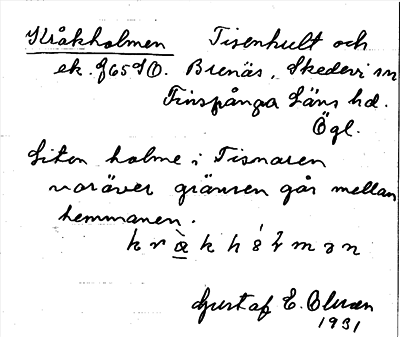 Kråkholmen Tisenhult och
ek. 965SO. Brenäs, Skedevi sn
Finspånga Läns hd.
Ögl.
Liten holme i Tisnaren
varöver gränsen går mellan
hemmanen.
Gustaf E. Olsson
1931